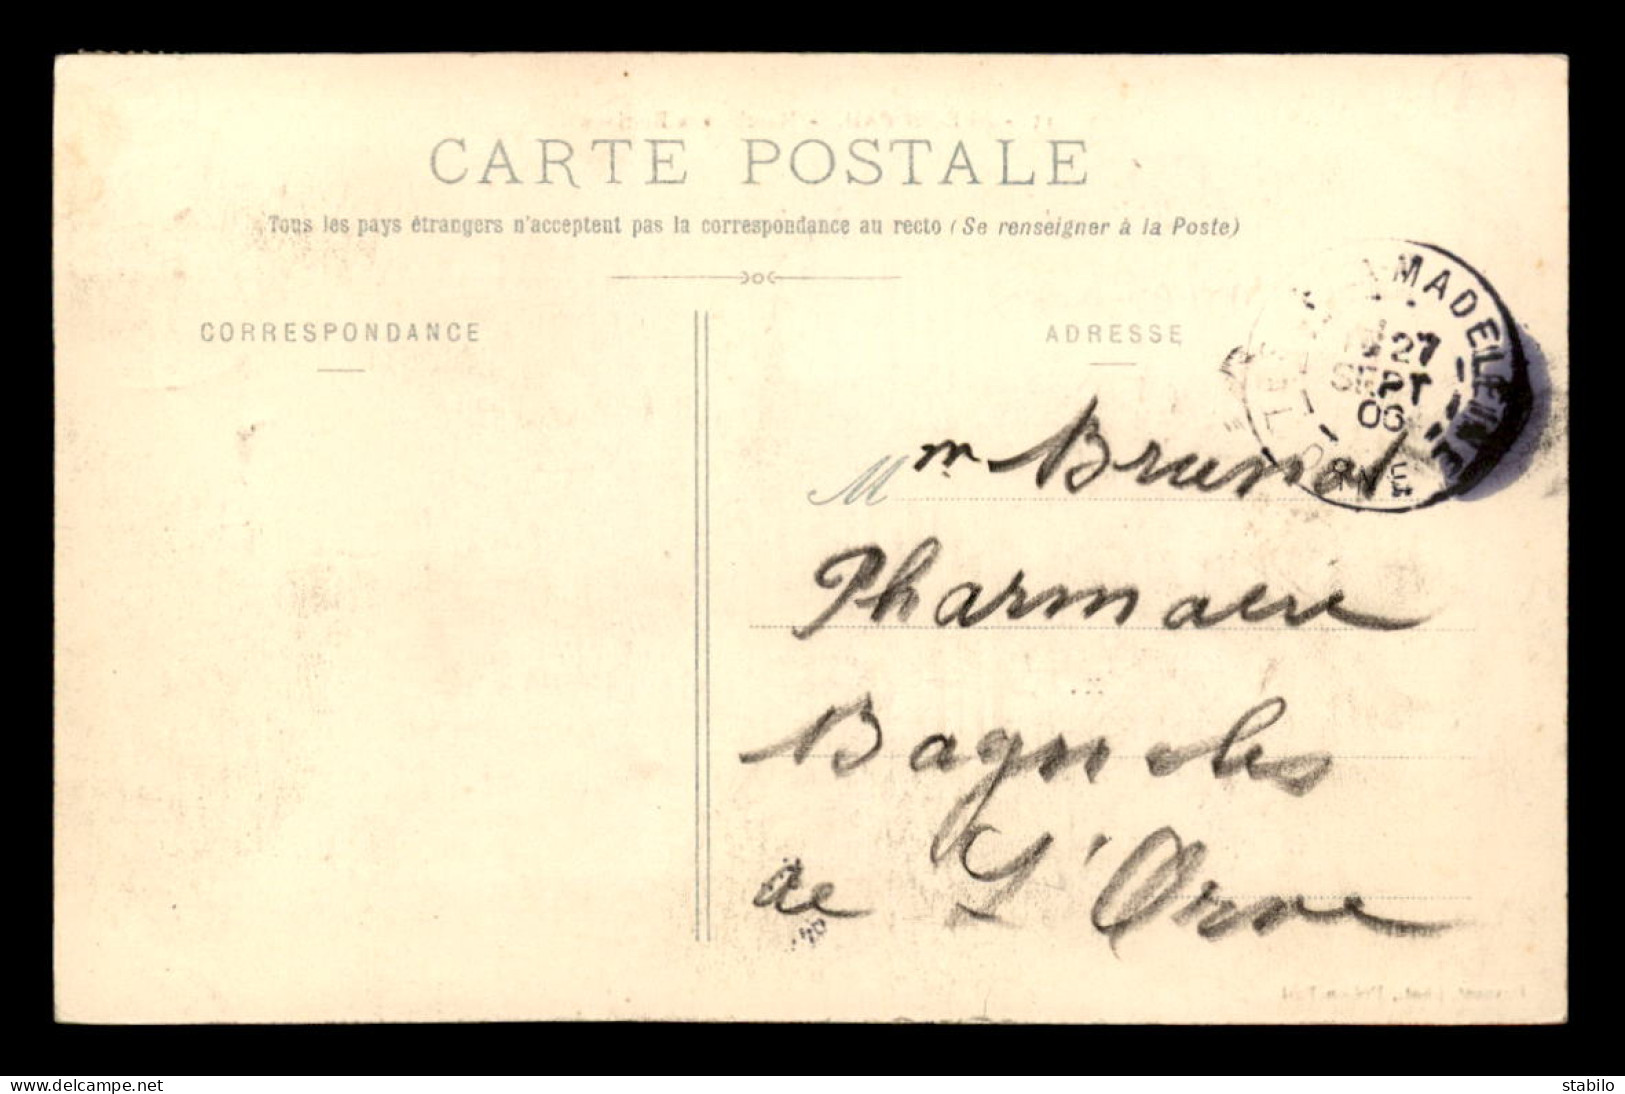 CARTE POSTALE
Tous les pays étrangers n'acceptent pas la correspondance au recto (Se renseigner à la Poste)
CORRESPONDANCE
ADRESSE
MADELEINE
27
SEPT
06
ORNE
M m Brunet
Pharmacie
Bagnoles
de L'Orne
delcampe.net
stabilo